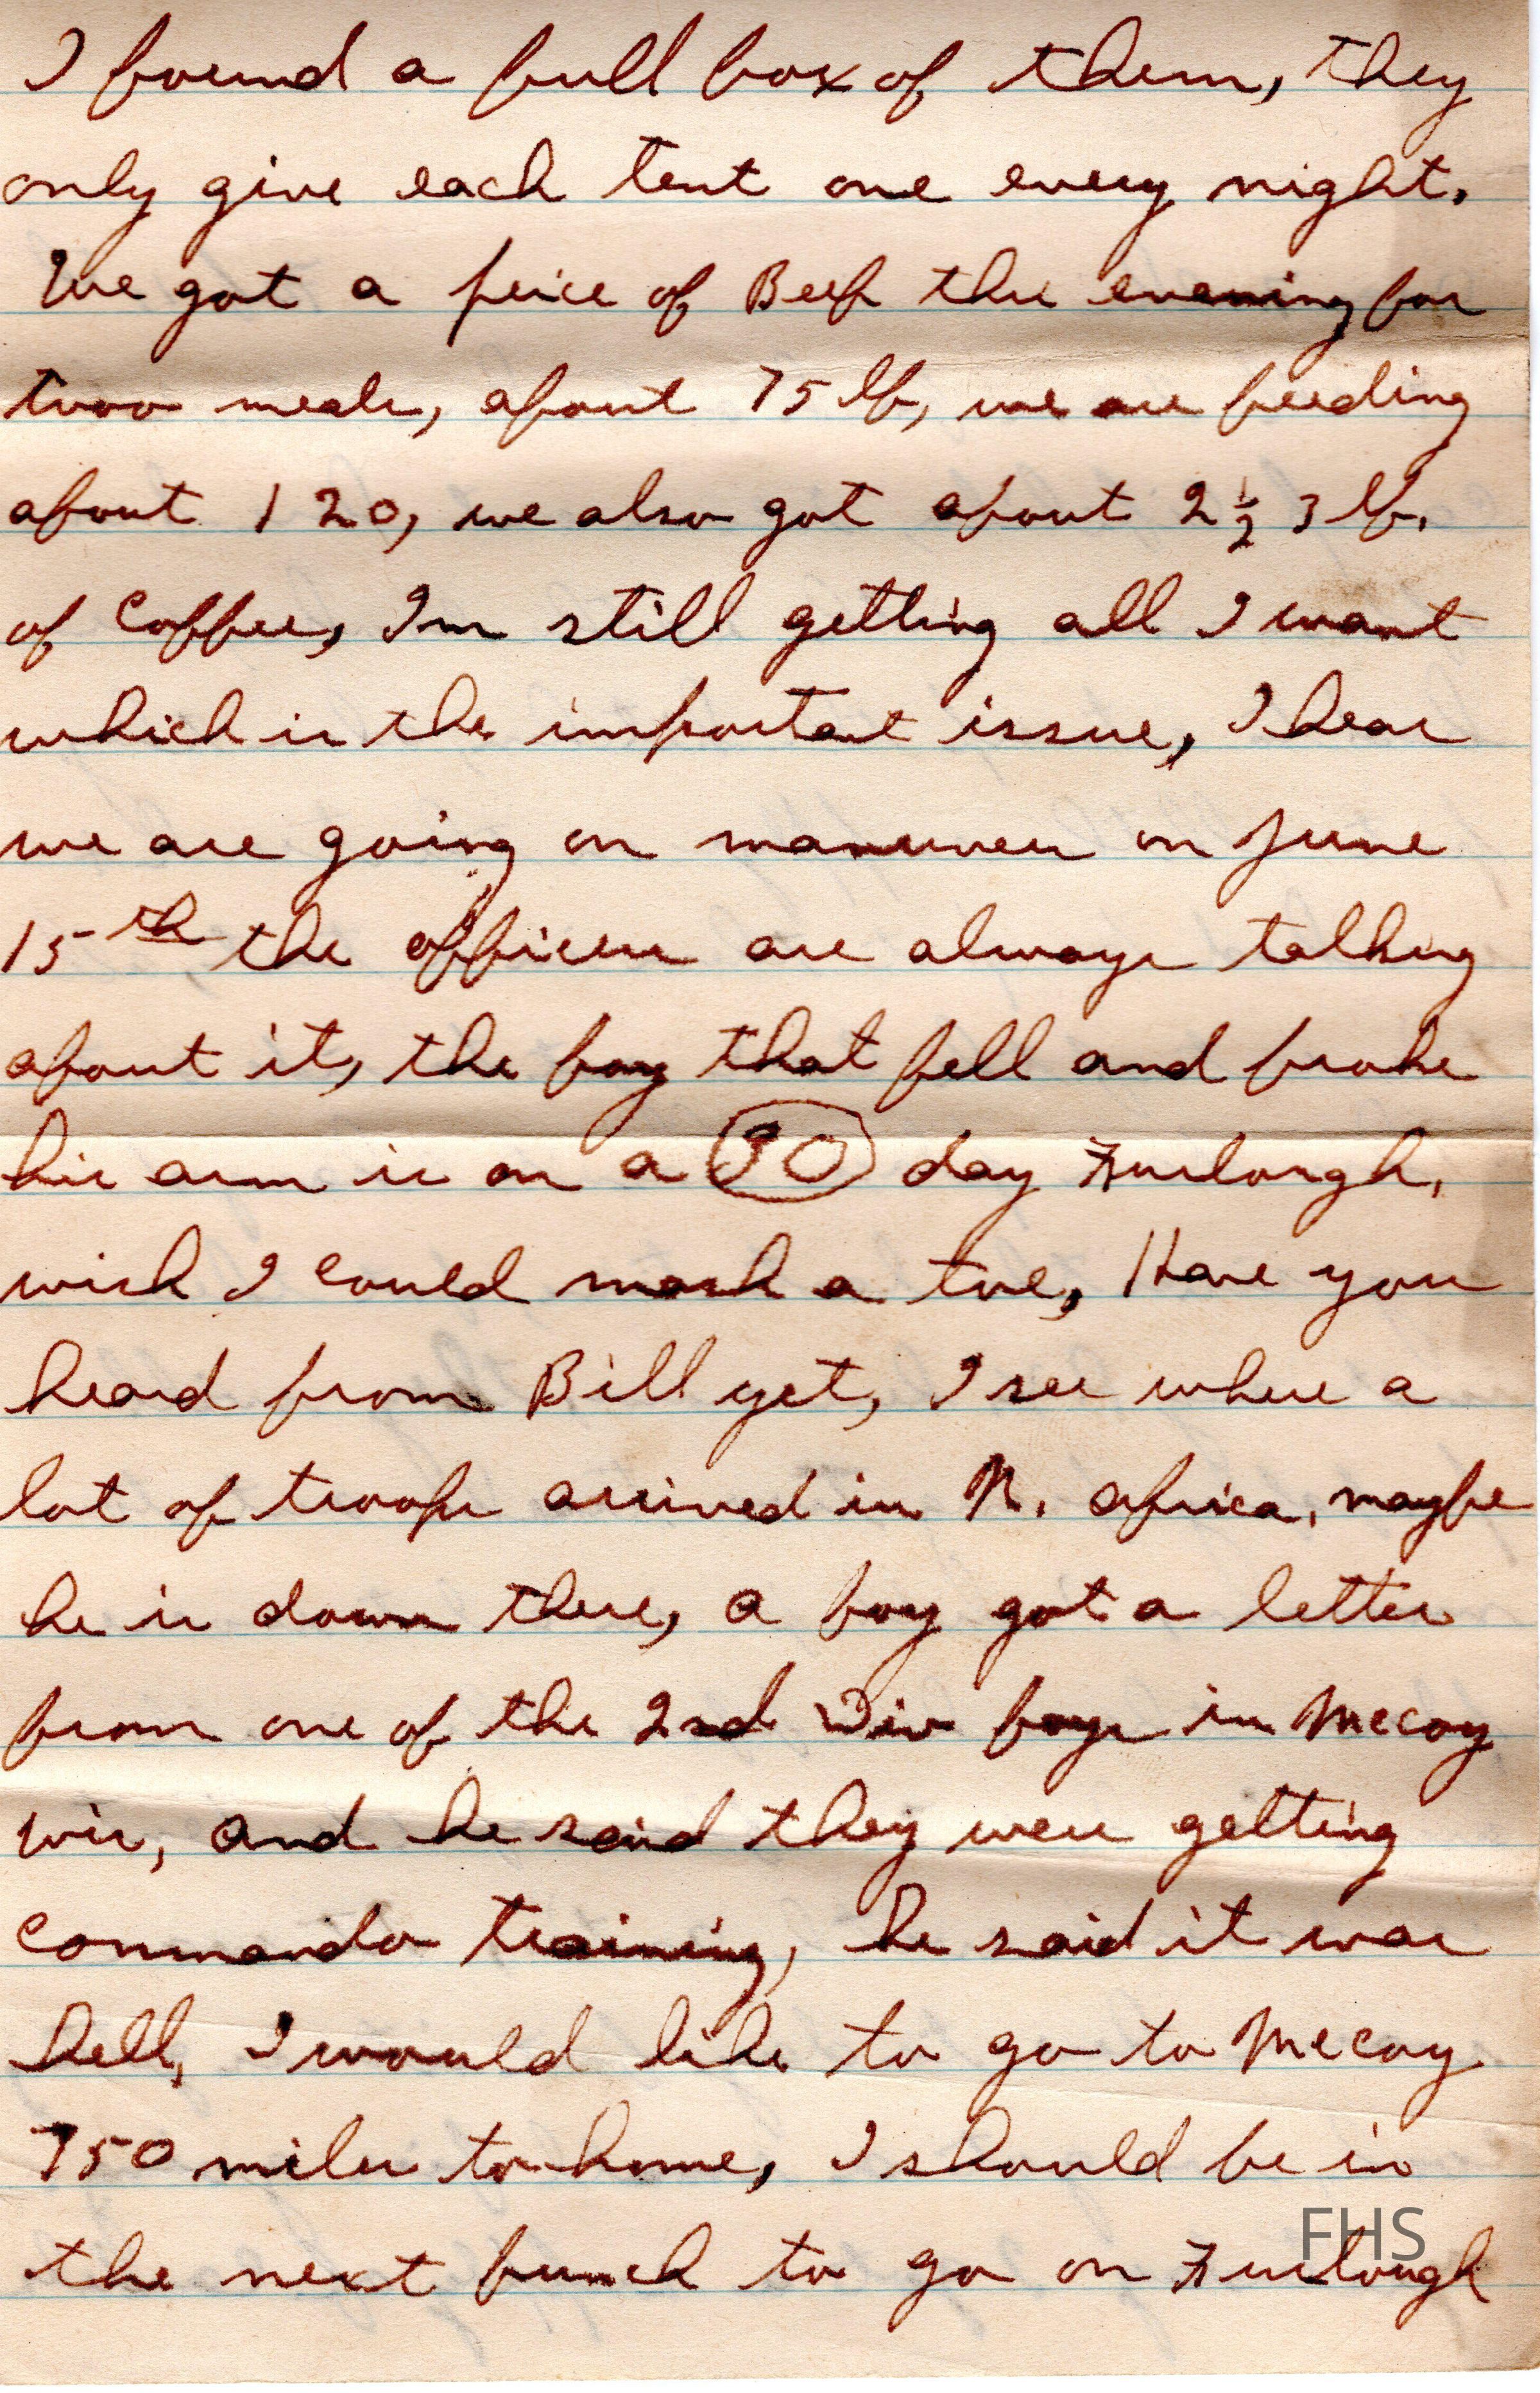 I found a full box of them, they
only give each tent one every night.
We got a peice of Beef the evening for
two meals, about 75 lb, we are feeding
about 120, we also got about 2 1/2 3 lb.
of Coffee, Im still getting all I want
which is the important issue, I hear
we are going on maneuver on June
15th the officers are always talking
about it, the boy that fell and broke
his arm is on a 30 day Furlough,
wish I could mash a toe, Have you
heard from Bill yet, I see where a
lot of troops arrived in N. Africa, maybe
he is down there, a boy got a letter
from one of the 2nd Div boys in Mccoy
wis, and he said they were getting
commando training, he said it was
hell, I would like to go to Mccoy
750 miles to home, I should be in
the next bunch to go on Furlough
FHS